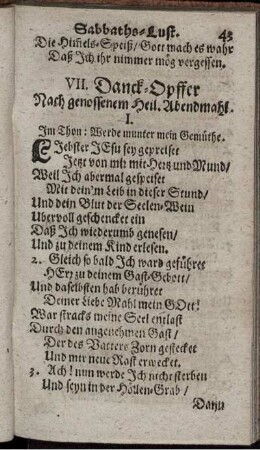 Sabbaths-Lust. 43
Die Him̃els-Speiß/ Gott mach es wahr
Daß Jch ihr nimmer mög vergessen.
VII. Danck-Opffer
Nach genossenem Heil. Abendmahl.
I.
Jm Thon: Werde munter mein Gemüthe.
Liebster JEsu sey gepreiset
Jetzt von mir mit Hertz und Mund/
Weil Jch abermal gespeiset
Mit dein'm Leib in dieser Stund/
Und dein Blut der Seelen-Wein
Ubervoll geschencket ein
Daß Jch wiederumb genesen/
Und zu deinem Kind erlesen.
2. Gleich so bald Jch ward geführet
HErr zu deinem Gast-Gebott/
Und daselbsten hab berühret
Deiner Liebe Mahl mein GOtt!
War stracks meine Seel entlast
Durch den angenehmen Gast/
Der des Vatters Zorn gestecket
Und mir neue Rast erwecket.
3. Ach! nun werde Jch nicht sterben
Und seyn in der Höllen-Grab/
Dann